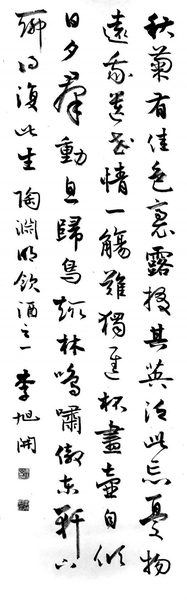 秋菊有佳色裛露掇其英泛此忘憂物
遠我遺世情一觴雖獨進杯盡壺自傾
日夕群動息歸鳥趨林鳴嘯傲東軒下
聊得復此生陶淵明飲酒之一李旭開